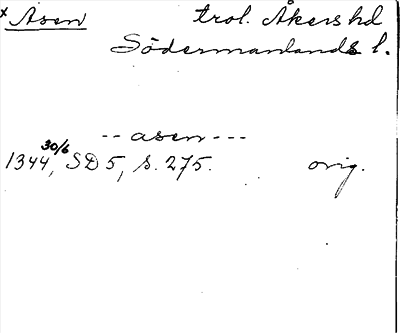 x Asen trol. Åkers hd
Södermanlands l.
-- asen ---
1344, 30/6 SD 5, s. 275. orig.